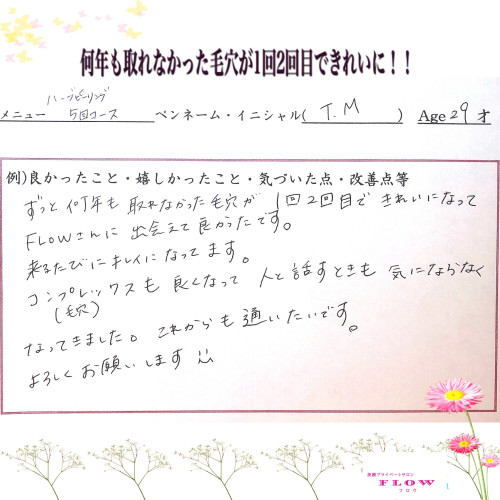 何年も取れなかった毛穴が1回2回目できれいに！！
ハーブピーリング
メニュー 5回コース ペンネーム・イニシャル( T.M ) Age 29 才
例)良かったこと・嬉しかったこと・気づいた点・改善点等
ずっと何年も取れなかった毛穴が1回2回目できれいになって
FLOWさんに出会えて良かったです。
来るたびにキレイになってます。
コンプレックスも良くなって人と話すときも気にならなく
(毛穴)
なってきました。これからも通いたいです。
よろしくお願いします
完全プライベートサロン
FLOW
フロウ